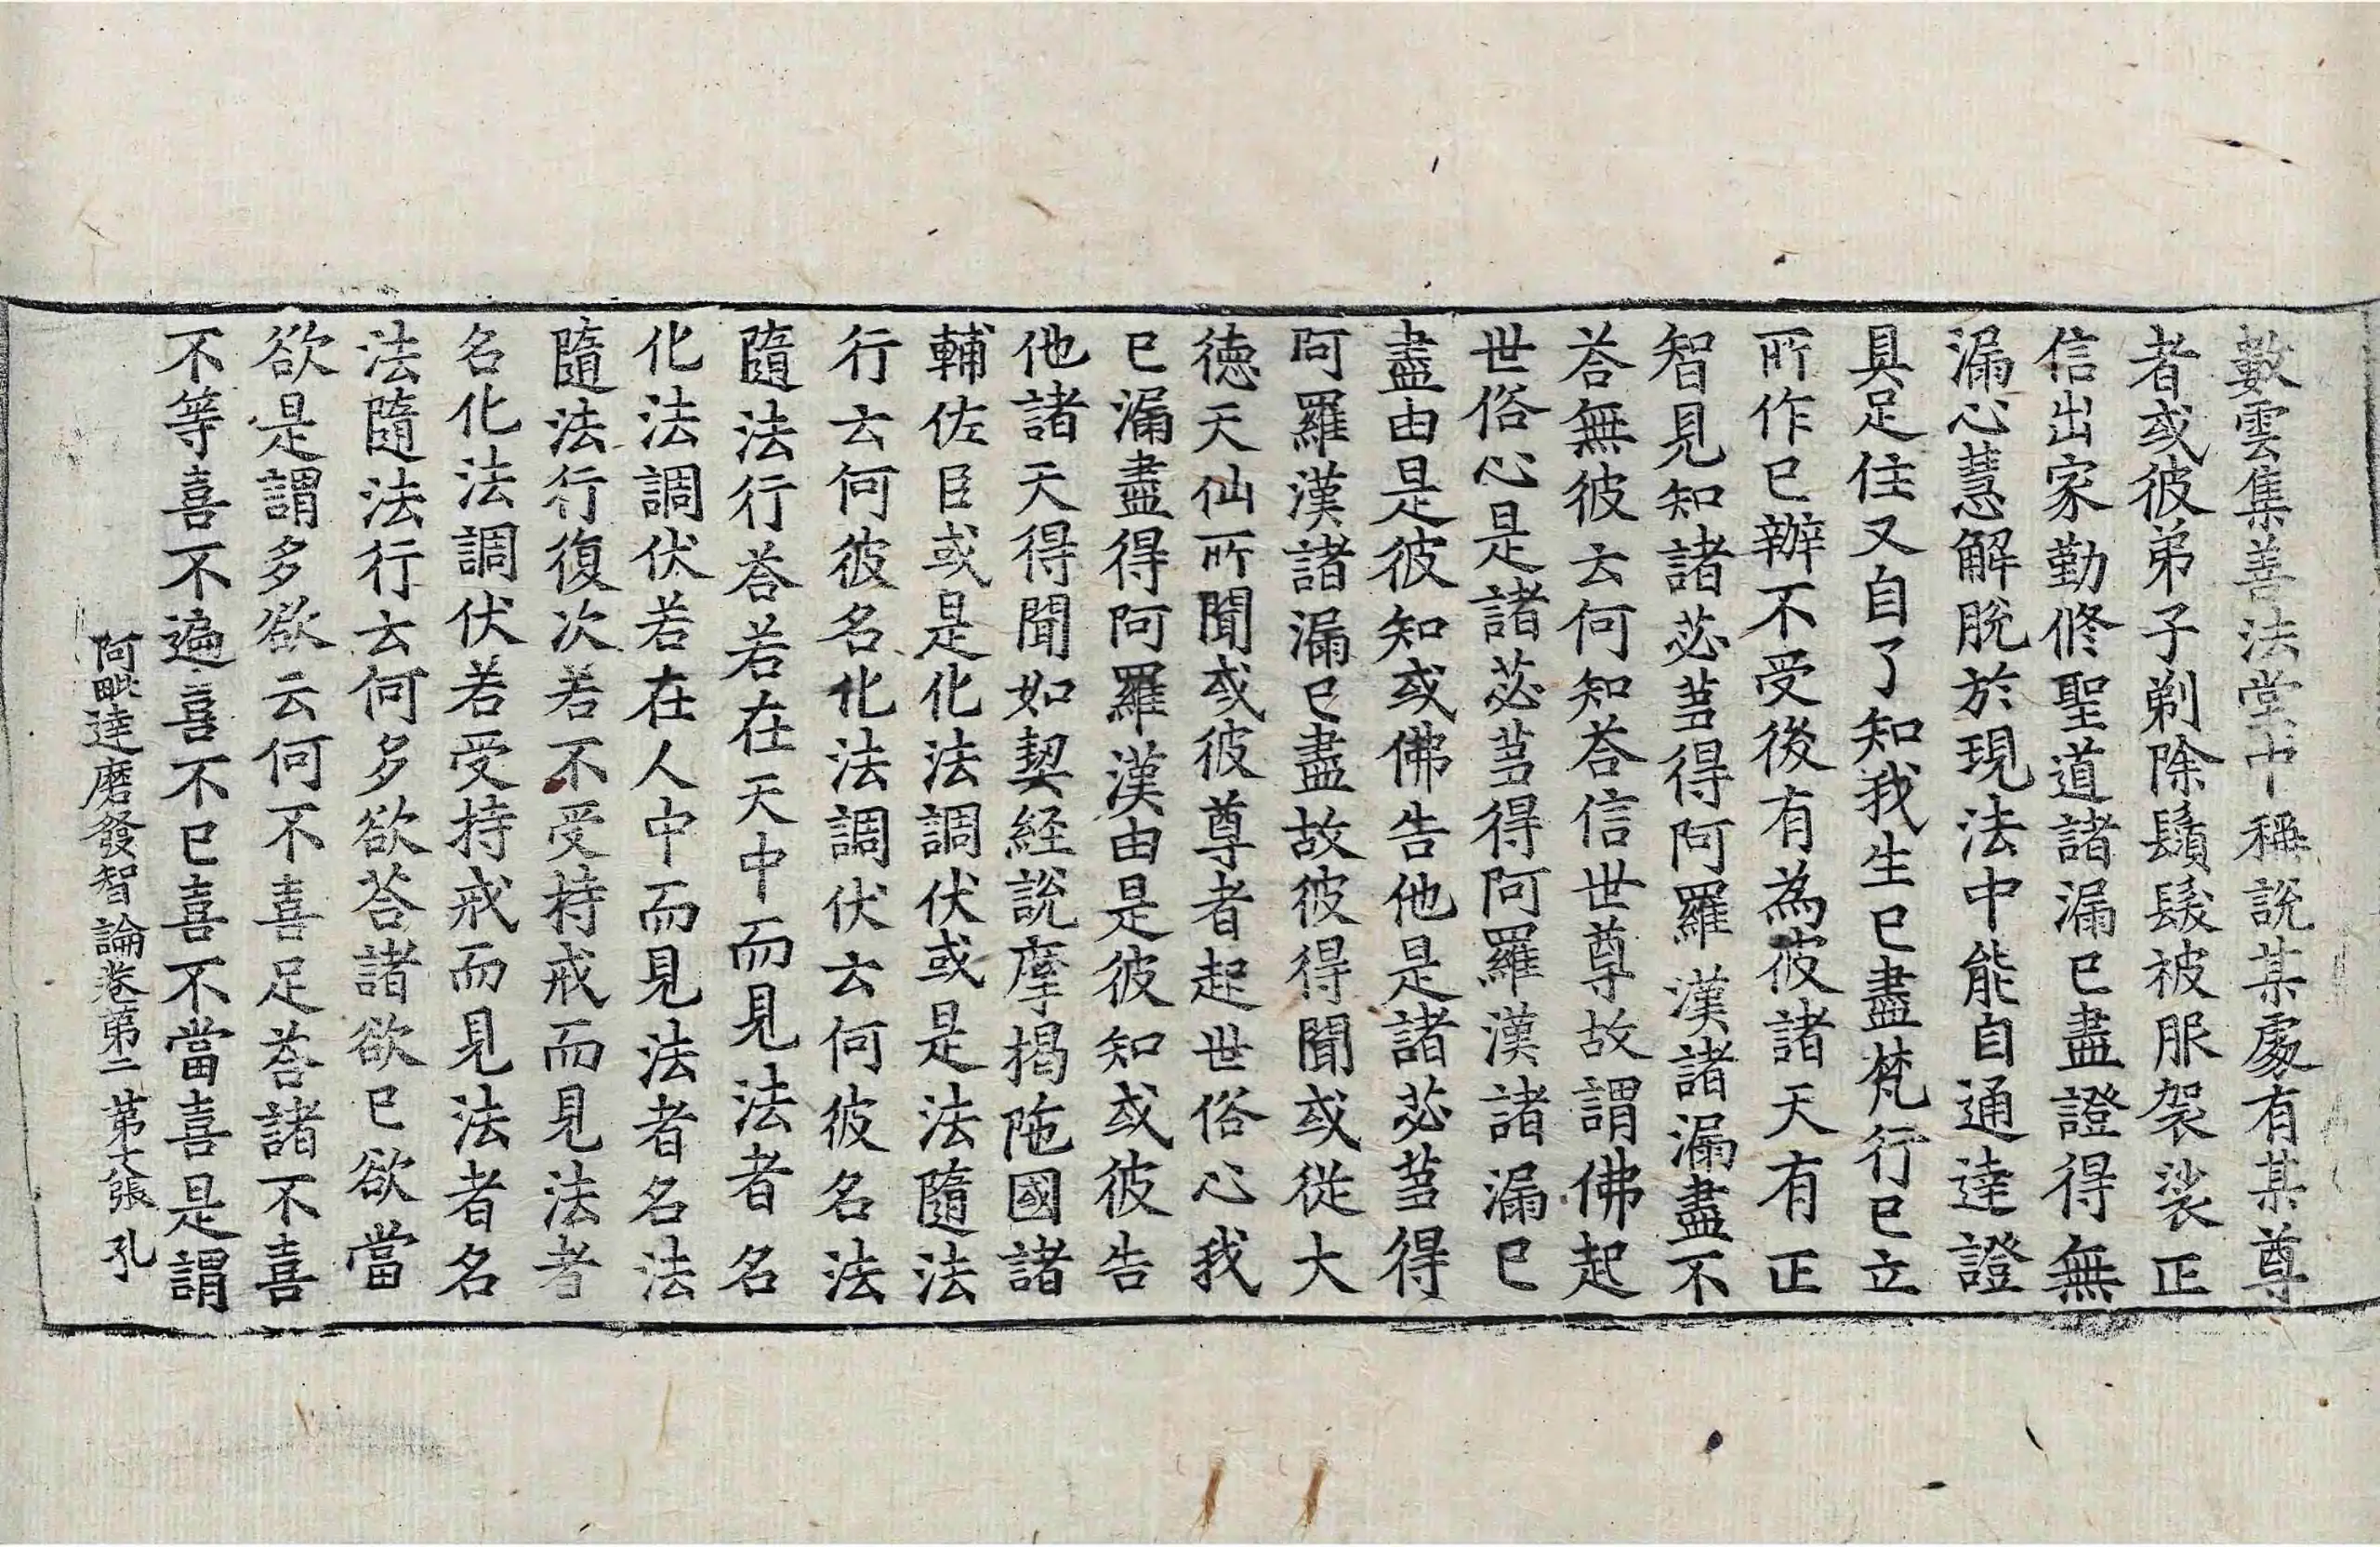 數雲集善法堂中稱說某處有某尊
者或彼弟子剃除鬚髮被服袈裟正
信出家勤修聖道諸漏已盡證得無
漏心慧解脫於現法中能自通達證
具足住又自了知我生已盡梵行已立
所作已辦不受後有為彼諸天有正
智見知諸苾芻得阿羅漢諸漏盡不
荅無彼云何知荅信世尊故謂佛起
世俗心是諸苾芻得阿羅漢諸漏已
盡由是彼知或佛告他是諸苾芻得
阿羅漢諸漏已盡故彼得聞或從大
德天仙所聞或彼尊者起世俗心我
已漏盡得阿羅漢由是彼知或彼告
他諸天得聞如契経說摩揭陁國諸
輔佐臣或是化法調伏或是法隨法
行云何彼名化法調伏云何彼名法
隨法行荅若在天中而見法者名
化法調伏若在人中而見法者名法
隨法行復次若不受持戒而見法者
名化法調伏若受持戒而見法者名
法隨法行云何多欲荅諸欲已欲當
欲是謂多欲云何不喜足荅諸不喜
不等喜不遍喜不已喜不當喜是謂
阿毗達磨發智論卷第二 第六張 孔